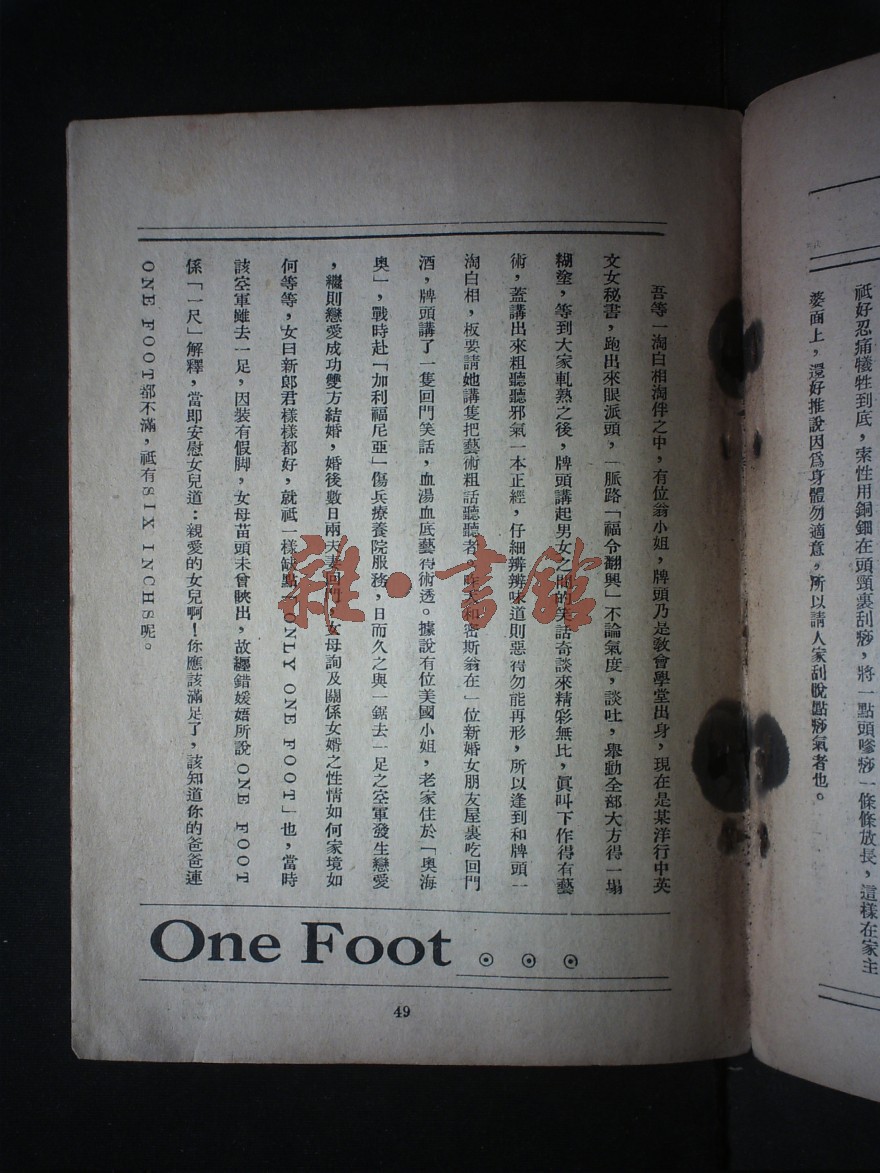 祇好忍痛犧牲到底，索性用銅鈿在頭頸裏刮痧，將一點頭嗲痧一條條放長，這樣在家主
婆面上，還好推說因爲身體勿適意，所以請人家刮脫點痧氣者也。
吾等一淘白相淘伴之中，有位翁小姐，牌頭乃是敎會學堂出身，現在是某洋行中英
文女秘書，跑出來眼派頭，一脈路「福令翻興」不論氣度，談吐，舉動全部大方得一塌
糊塗，等到大家軋熟之後，牌頭講起男女之間的笑話奇談來精彩無比，眞叫下作得有藝
術，蓋講出來粗聽聽邪氣一本正經，仔細辨辨味道則惡得勿能再形，所以逢到和牌頭一
淘白相，板要請她講隻把藝術粗話聽聽者，昨天和密斯翁在一位新婚女朋友屋裏吃回門
酒，牌頭講了一隻回門笑話，血湯血底藝得術透。據說有位美國小姐，老家住於「奧海
奧」，戰時赴「加利福尼亞」傷兵療養院服務，日而久之與一鋸去一足之空軍發生戀愛
，繼則戀愛成功雙方結婚，婚後數日兩夫妻回門，女母詢及關係女婿之性情如何家境如
何等等，女曰新郎君樣樣都好，就祇一樣缺點「ONLY ONE FOOT」也，當時
該空軍雖去一足，因裝有假脚，女母苗頭未曾映出，故纏錯媛嬉所說ONE FOOT
係「一尺」解釋，當即安慰女兒道：親愛的女兒啊！你應該滿足了，該知道你的爸爸連
ONE FOOT都不滿，祇有SIX INCHS呢。
One Foot
49
雜·書館